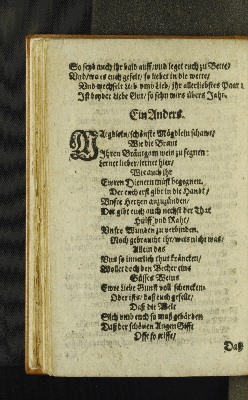 So seyd nuch ihr bald auff/ und leget euch zu Bette/
Und/wo es euch gefelt/ so lieber in die wette/
Und wechselt Lieb umb Lieb/ ihr allerliebstes Paar
Ist beyder Liebe Gut/ so sehn wirs übers Jahr.
Ein Anders.
schönste Mägdlein schawt/
Wie die Braut
Ihren Bräutgam weis zu segnen:
Lernet lieber/ lernet hier/
Wie auch ihr
Ewren Dienern müst begegnen.
Der euch erst gibt in die Handt/
Unsre Hertzen anzuzünden/
Der gibt euch auch nechst der That
Hülff und Raht/
Unsre Wunden zu verbinden.
Noch gebraucht ihr/ weis nicht was/
Allein das
Uns so innerlich thut kräncken/
Wollet doch den Becher eins
Süsses Weins
Ewre Liebe Gunst voll schencken.
Oder ists/ daß euch gefellt/
Daß die Welt
Sich umb euch so muß gebärden
Daß der schönen Augen Gifft
Offt so trifft/
Daß